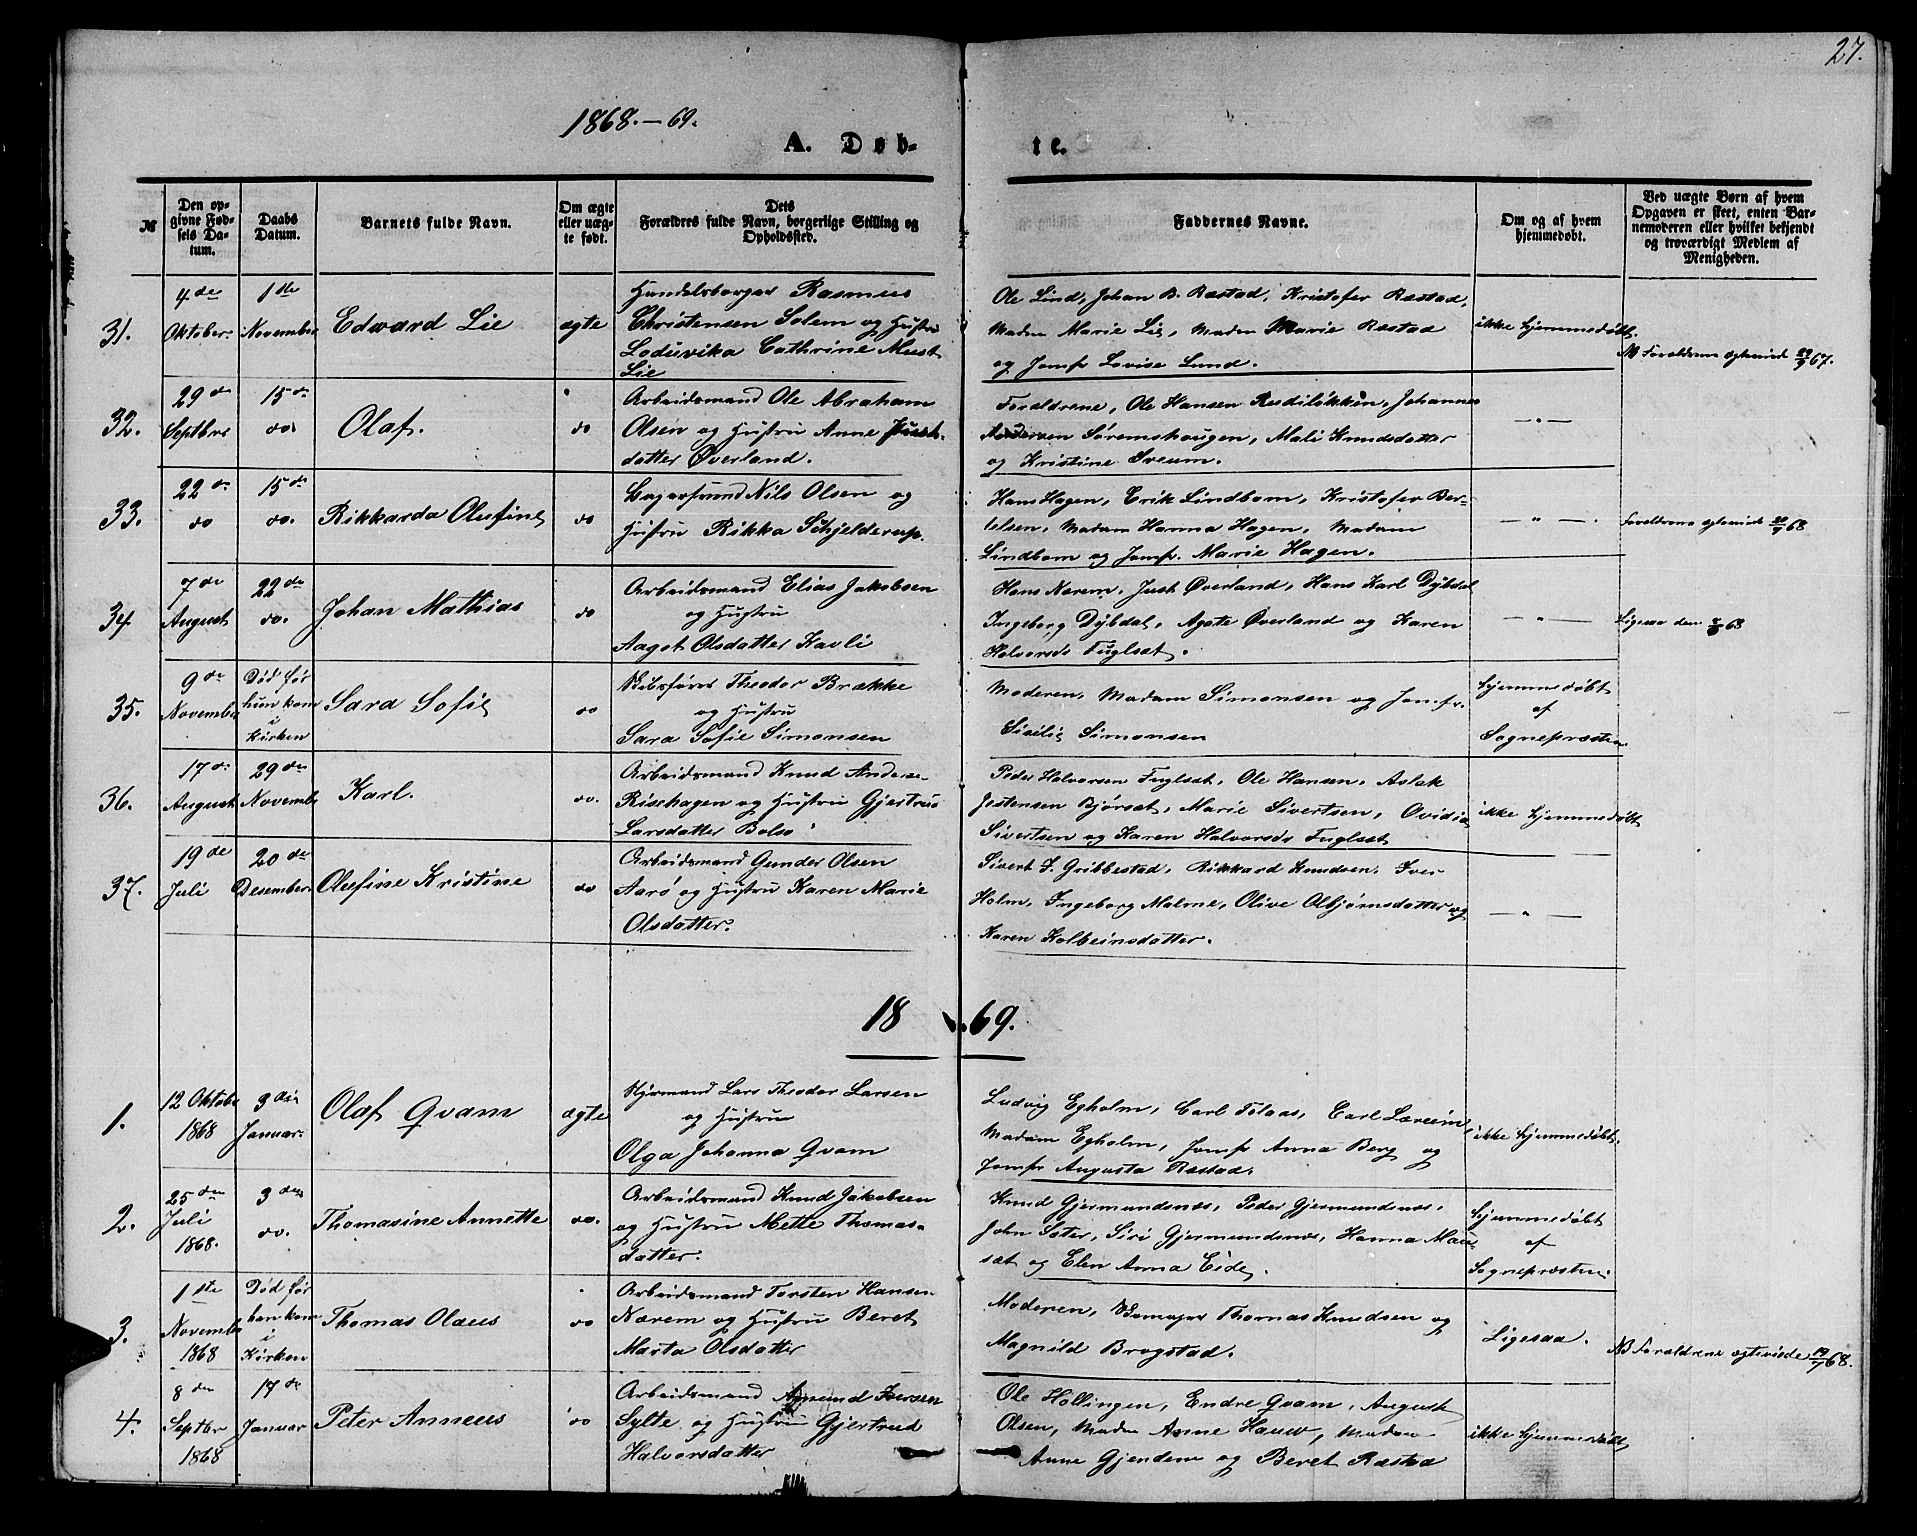 27.
1868.-69.
A. Døb-
te.
№
Den op-
givne Fød-
sels Da-
tum.
Daabs
Datum.
Barnets fulde Navn.
Om ægte
eller uæg-
te født.
Dets
Forældres fulde Navn, borgerlige Stilling og
Opholdssted.
Faddernes Navne.
Om og af hvem
hjemmedøbt.
Ved uægte Børn af hvem
Opgaven er skeet, enten Bar-
nemoderen eller hvilket bekjendt
og troværdigt Medlem af
Menigheden.
31.
4de
Oktober.
1ste
November
Edward Lie
ægte
Handelsborger Rasmus
Christensen Solem og Hustru
Loduvika Cathrine Must
Lie
Ole Lind, Johan B. Ræstad, Kristofer Ræstad,
Madm Marie Lie, Madm Marie Ræstad
og Jomfr Lovise Lund.
ikke hjemmedøbt.
NB Forældrene ægteviede 29/9 67.
32.
29de
Septbre
15de
do.
Olaf.
do
Arbeidsmand Ole Abraham
Olsen og Hustru Anne
datter Øverland.
Forældrene, Ole Hansen Rediløkken, Johannes
Andersen Søremshaugen, Mali Knudsdatter
og Kristine Sveum.
— " —
33.
22de
do
15de
do.
Rikkarda Olufine
do
Bagersvend Nils Olsen og
Hustru Rikka Schjelderup.
Hans Hagen, Erik Lindbom, Kristofer Ber-
telsen, Madam Hanna Hagen, Madam
Lindbom og Jomfr. Marie Hagen.
— " —.
Forældrene ægteviede 68
34
7de
August
22de
do.
Johan Mathias
do
Arbeidsmand Elias Jakobsen
og Hustru
Aagot Olsdatter Kavli
Hans Nærem, Just Øverland, Hans Karl Dybdal
Ingeborg Dybdal, Agate Øverland og Karen
Halvorsdr Fuglset.
— " —
Ligesaa den 68
35.
9de
November
Død før
hun kom
i
Kirken
Sara Sofie
do
Skibsfører Theodor Brække
og Hustru
Sara Sofie Simonsen
Moderen, Madam Simonsen og Jomfr.
Sisilie Simonsen
hjemmedøbt
af
Sognepræsten
36.
17de
August
29de
Novembr
Karl.
do.
Arbeidsmand Knud Anderse-
Risehagen og Hustru Gjertrud
Larsdatter Bolsø
Peder Halvorsen Fuglset, Ole Hansen, Aslak
Jostensen Bjørset, Marie Sivertsen, Ovidia
Sivertsen og Karen Halvorsdr Fuglset
ikke hjemmedøbt
37.
19de
Juli
20de
Desember
Olufine Kristine
do
Arbeidsmand Gunder Olsen
Aarø og Hustru Karen Marie
Olsdatter.
Sivert J. Gribbestad, Rikkard Knudsen, Iver
Holm, Ingeborg Malme, Olive Asbjørnsdatter og
Karen Kolbeinsdatter.
— " —
1869.
1.
12 Oktobe
1868
3die
Januar.
Olaf Qvam
ægte
Styrmand Lars Theodor Larsen
og Hustru
Olga Johanna Qvam
Ludvig Egholm, Carl Folaas, Carl
Madam Egholm, Jomfr Anna Berg og
Jomfr Augusta Ræstad.
ikke hjemmedøbt.
2.
25de
Juli
1868.
3die
do.
Thomasine Annette
do.
Arbeidsmand Knud Jakobsen
og Hustru Mette Thomas-
datter.
Knud Gjermundnes, Peder Gjermundnes,
John Sæter, Siri Gjermundnes, Hanna Mau-
sæt og Elen Anna Eide.
hjemmedøbt
af
Sognepræsten
3.
1ste
November
1868
Død før
han kom
i
Kirken
Thomas Olaus
do
Arbeidsmand Torsten Hansen
Nærem og Hustru Beret
Marta Olsdatter
Moderen, Thomas Knudsen og
Magnild Brogstad.
Ligesaa.
NB Forældrene ægteviede 19/7 68.
4.
8de
Septbr
1868
17de
Januar
Peter Anneus
do
Arbeidsmand Amund Iversen
Sylte og Hustru Gjertrud
Halvorsdatter
Ole Hollingen, Endre Qvam, August
Olsen, Madm Anne Hauw, Madm
Anne Gjendem og Beret Ræstad
ikke hjemmedøbt